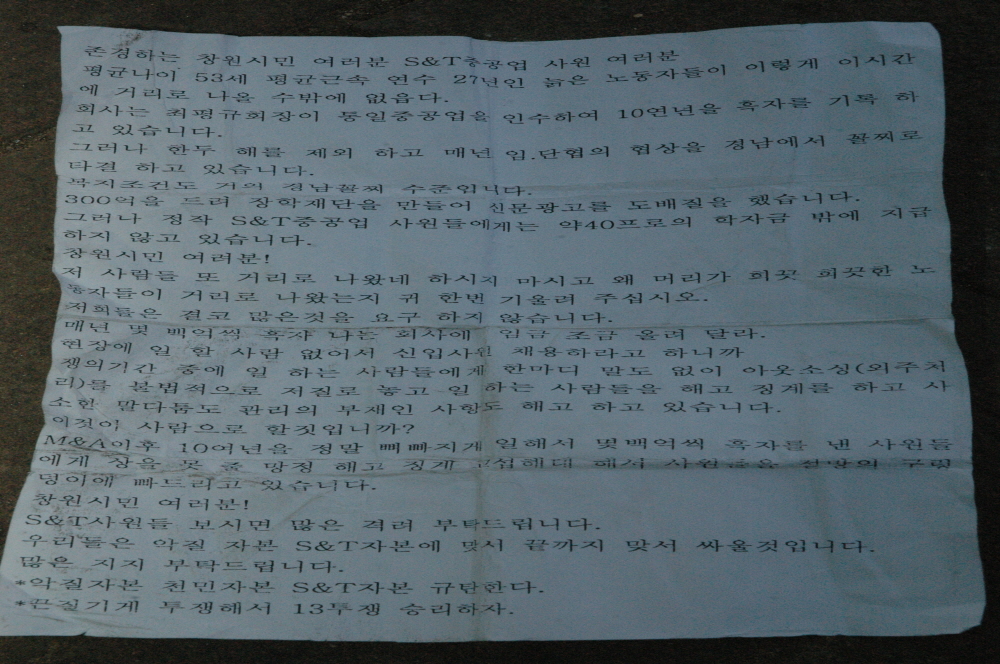 존경하는 창원시민 여러분 S&T중공업 사원 여러분
평균나이 53세 평균근속 연수 27년인 늙은 노동자들이 이렇게 이시간
에 거리로 나올 수밖에 없읍다.
회사는 최평규회장이 통일중공업을 인수하여 10연년을 흑자를 기록 하
고 있습니다.
그러나 한두 해를 제외 하고 매년 임.단협의 협상을 경남에서 꼴찌로
타결 하고 있습니다.
복지조건도 거의 경남꼴찌 수준입니다.
300억을 드려 장학재단을 만들어 신문광고를 도배질을 했습니다.
그러나 정작 S&T중공업 사원들에게는 약40프로의 학자금 밖에 지급
하지 않고 있습니다.
창원시민 여러분!
저 사람들 또 거리로 나왔네 하시지 마시고 왜 머리가 희끗 희끗한 노
동자들이 거리로 나왔는지 귀 한번 기울려 주십시오.
저희들은 결코 많은것을 요구 하지 않습니다.
매년 몇 백억씩 흑자 나는 회사에 임금 조금 올려 달라.
현장에 일 할 사람 없어서 신입사원 채용하라고 하니까
쟁의기간 중에 일 하는 사람들에게 한마디 말도 없이 아웃소싱(외주처
리)를 불법적으로 저질로 놓고 일 하는 사람들을 해고 징계를 하고 사
소한 말다툼도 관리의 부재인 사항도 해고 하고 있습니다.
이것이 사람으로 할짓입니까?
M&A이후 10여년을 정말 뼈빠지게 일해서 몇백억씩 흑자를 낸 사원들
에게 상을 못 줄 망정 해고 징계 해서 사원들을 절망의 구렁
텅이에 빠드리고 있습니다.
창원시민 여러분!
S&T사원들 보시면 많은 격려 부탁드립니다.
우리들은 악질 자본 S&T자본에 맞서 끝까지 맞서 싸울것입니다.
많은 지지 부탁드립니다.
*악질자본 천민자본 S&T자본 규탄한다.
*끈질기게 투쟁해서 13투쟁 승리하자.